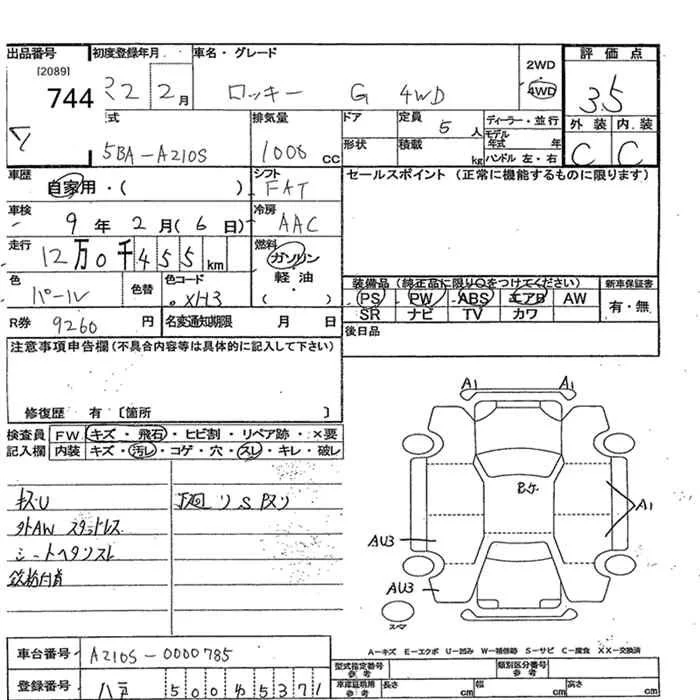 出品番号 初度登録年月 車名・グレード 2WD 評価点
[2089]
744 R2 2月 ロッキー G 4WD 4WD 3.5
型式 排気量 ドア 定員 5人 ディーラー・並行 外装 内装
5BA-A210S 1000cc 形状 積載 kg モデル年式 年 C C
ハンドル 左・右
車歴 自家用・( ) シフト FAT セールスポイント (正常に機能するものに限ります)
車検 9年2月(6日) 冷房 AAC
走行 12万0千455km 燃料 ガソリン
軽油
( )
色 パール 色替 色コード XH3 装備品 (純正品に限り○をつけてください) 新車保証書
PS PW ABS エアB AW 有・無
R券 9260円 名変通知期限 月 日 SR ナビ TV カワ
後日品
注意事項申告欄(不具合内容等は具体的に記入して下さい)
修復歴 有 〔箇所 〕
検査員 FW キズ・飛石・ヒビ割・リペア跡・×要
記入欄 内装 キズ・汚レ・コゲ・穴・スレ・キレ・破レ
A1 A1
キズU 下廻りSタリ
外AW スタッドレス
シートヘタリスレ
A1
AU3
AU3
スマ
A-キズ E-エクボ U-凹み W-補修跡 S-サビ C-腐食 XX-交換済
車台番号 A210S-0000785
型式指定番号 参考 類別区分番号 参考
登録番号 八戸 500 5371
車庫証明用 参考 長さ cm 幅 cm 高さ cm